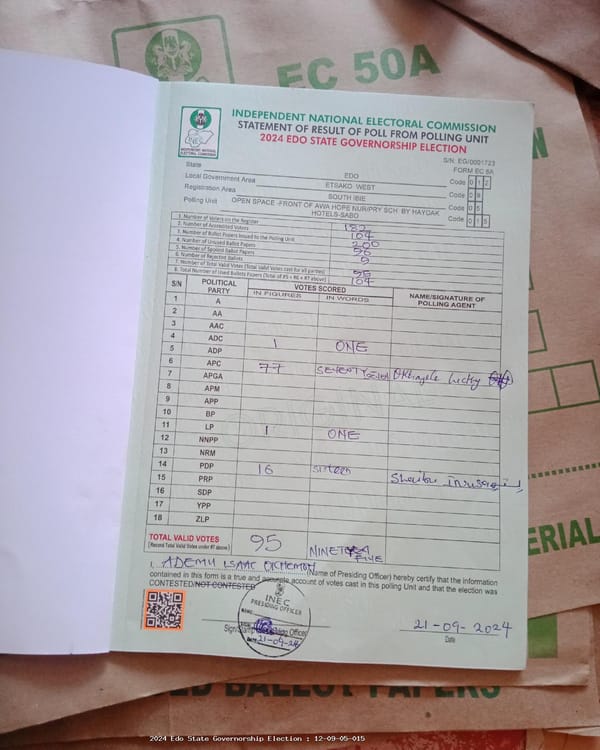 EC 50A
INDEPENDENT NATIONAL ELECTORAL COMMISSION
STATEMENT OF RESULT OF POLL FROM POLLING UNIT
2024 EDO STATE GOVERNORSHIP ELECTION
S/N: EG/0001723
FORM EC 8A
State EDO Code 012
Local Government Area ETSAKO WEST Code 09
Registration Area SOUTH IBIE Code 05
Polling Unit OPEN SPACE -FRONT OF AWA HOPE NUR/PRY SCH BY HAYDAK HOTELS-SABO Code 015
1. Number of Voters on the Register 182
2. Number of Accredited Voters 104
3. Number of Ballot Papers Issued to the Polling Unit 200
4. Number of Unused Ballot Papers
5. Number of Spoiled Ballot Papers
6. Number of Rejected Ballots
7. Number of Total Valid Votes (Total Valid Votes cast for all parties) 95
8. Total Number of Used Ballots Papers (Total of #5 + #6 + #7 above) 104
S/N POLITICAL PARTY VOTES SCORED NAME/SIGNATURE OF POLLING AGENT
IN FIGURES IN WORDS
1 A
2 AA
3 AAC
4 ADC 1 ONE
5 ADP
6 APC 77 SEVENTY SEVEN
7 APGA
8 APM
9 APP
10 BP
11 LP 1 ONE
12 NNPP
13 NRM
14 PDP 16 SIXTEEN
15 PRP
16 SDP
17 YPP
18 ZLP
TOTAL VALID VOTES 95 NINETY FIVE
(Record Total Valid Votes under #7 above)
I, ADEMU ISAAC (Name of Presiding Officer) hereby certify that the information
contained in this form is a true and accurate account of votes cast in this polling Unit and that the election was
CONTESTED/NOT CONTESTED
INEC
PRESIDING OFFICER
21-09-24
Sign/Stamp Presiding Officer
21-09-2024
Date
ERIAL
ED BALLOT PAPERS
2024 Edo State Governorship Election : 12-09-05-015